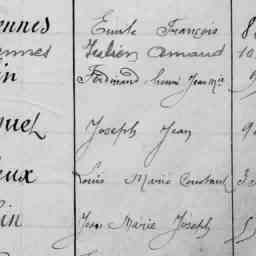 ennes Emile François 8
ennes Julien Armand 10
in Ferdinand Jean Mie 9
quet Joseph Jean 9
eux Louis Marie Constant
in Jean Marie Joseph